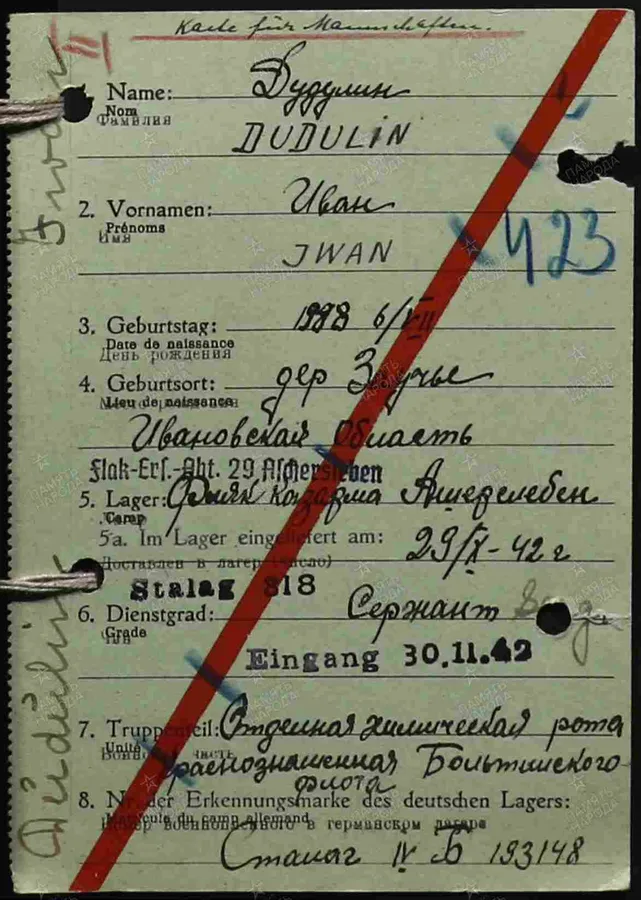 Karte für Mannschaften.
II
Name: Дудулин
Nom
Фамилия
DUDULIN
2. Vornamen: Иван
Prénoms
Имя
IWAN
423
3. Geburtstag: 6/VII
Date de naissance
День рождения
4. Geburtsort: дер Заучье
Lieu de naissance
Ивановская область
Flak-Ers.-Abt. 29 Aschersleben
5. Lager: Фляк казарма Ашерслебен
Camp
5a. Im Lager eingeliefert am: 29/IX-42 г
Доставлен в лагерь (число)
Stalag 318
6. Dienstgrad: Сержант
Grade
Чин
Eingang 30.11.42
7. Truppenteil: Отделная химическая рота
Unité
Военно часть
краснознаменная Болтийского
флота
8. Nr. der Erkennungsmarke des deutschen Lagers:
Matricule du camp allemand
Номер военнопленного в германском лагере
Сталаг IV Б 193148
Iwan
Dudulin